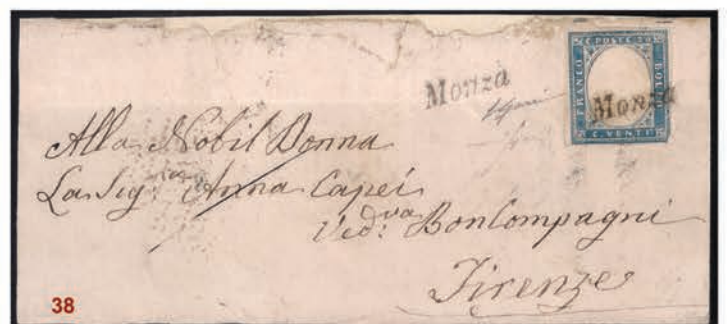 C. POSTE 20
FRANCO
BOLLO
C. VENTI
Monza
Monza
Alla Nobil Donna
La Sig.ra Anna Capei
Ved:va BonCompagni
Firenze
38